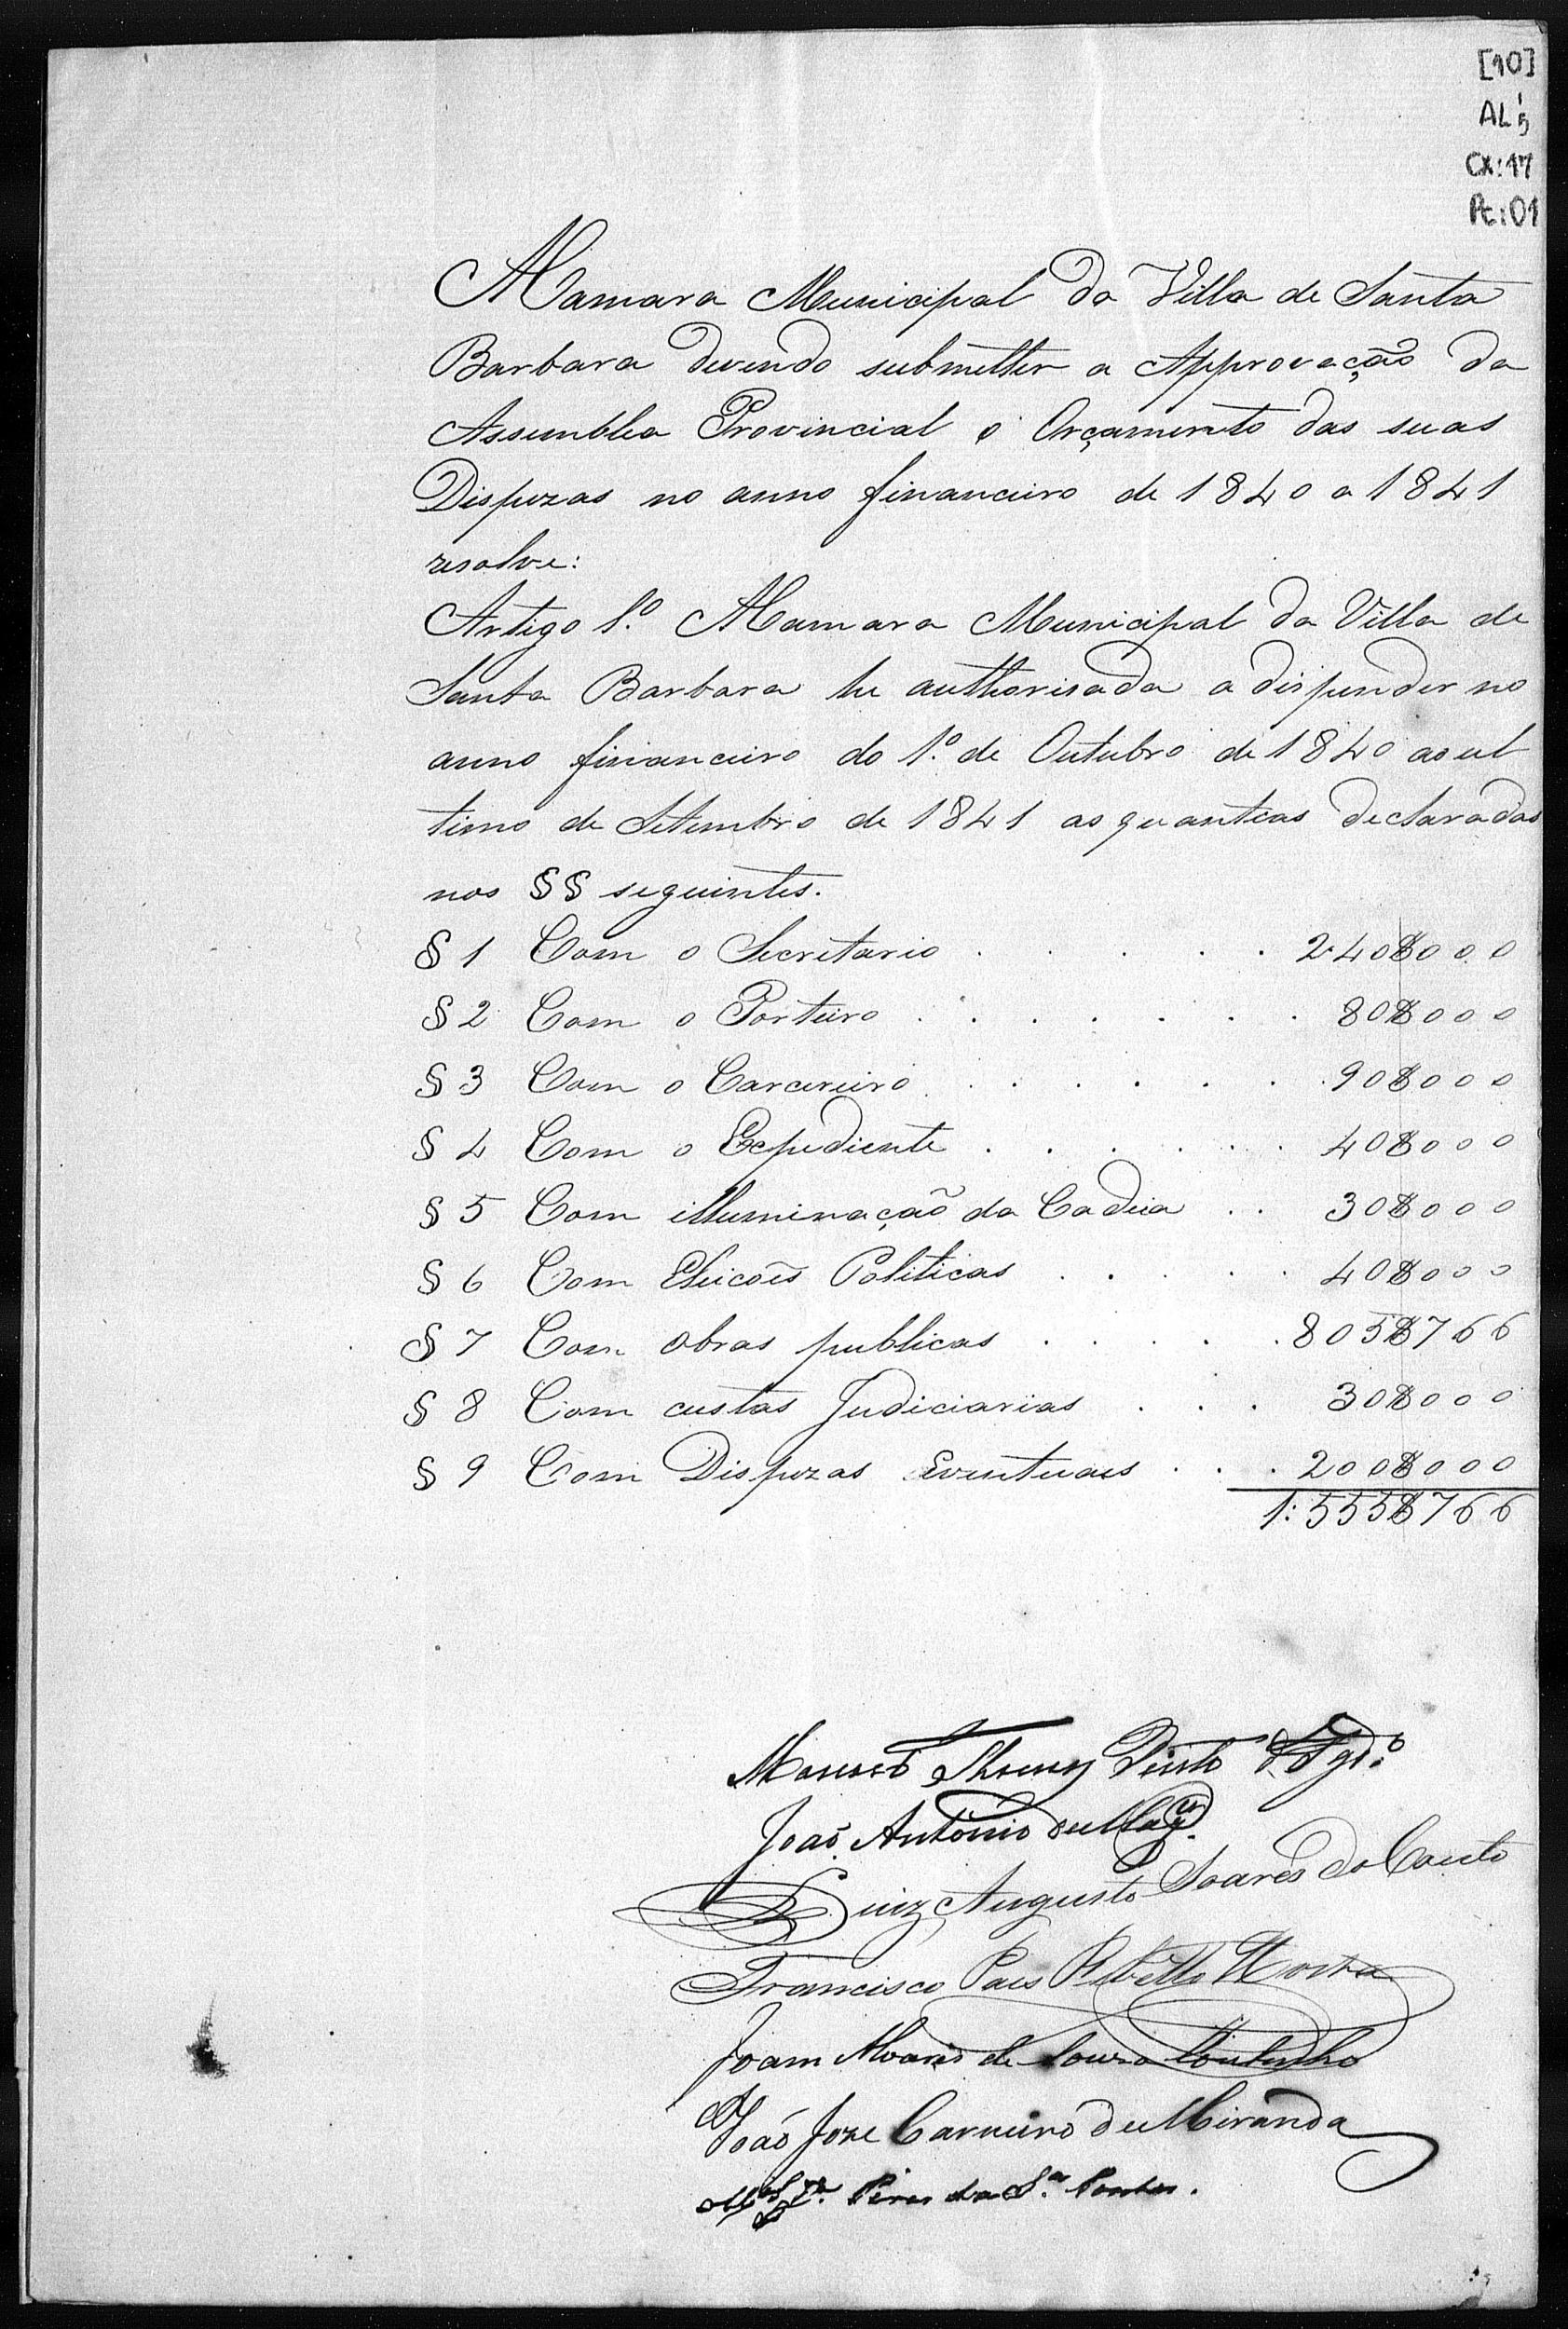 [10]
AL 1/5
CX:17
Pc:01
A Camara Municipal da Villa de Santa
Barbara devendo submetter a Approvação da
Assemblea Provincial o Orçamento das suas
Dispezas no anno financeiro de 1840 a 1841
resolve:
Artigo 1.º A Camara Municipal da Villa de
Santa Barbara he authorisada a dispender no
anno financeiro do 1.º de Outubro de 1840 ao ul
timo de Setembro de 1841 as quantias declaradas
nos §§ seguintes.
§ 1 Com o Secretario . . . . . 240$000
§ 2 Com o Porteiro . . . . . . . 80$000
§ 3 Com o Carcereiro . . . . . . . 90$000
§ 4 Com o Expediente . . . . . . 40$000
§ 5 Com illuminação da Cadeia . . 30$000
§ 6 Com Eleicoẽs Politicas . . . . . 40$000
§ 7 Com obras publicas . . . . . 805$766
§ 8 Com custas Judiciarias . . . 30$000
§ 9 Com Dispezas Eventuaes . . . 200$000
1:555$766
Manoel Pinto
João Antonio de
Luiz Augusto Soares do Couto
Francisco Paes Rebello Horta
Joam Alvares de Souza Coutinho
João Joze Carneiro de Miranda
Pires da S.ª Pontes.